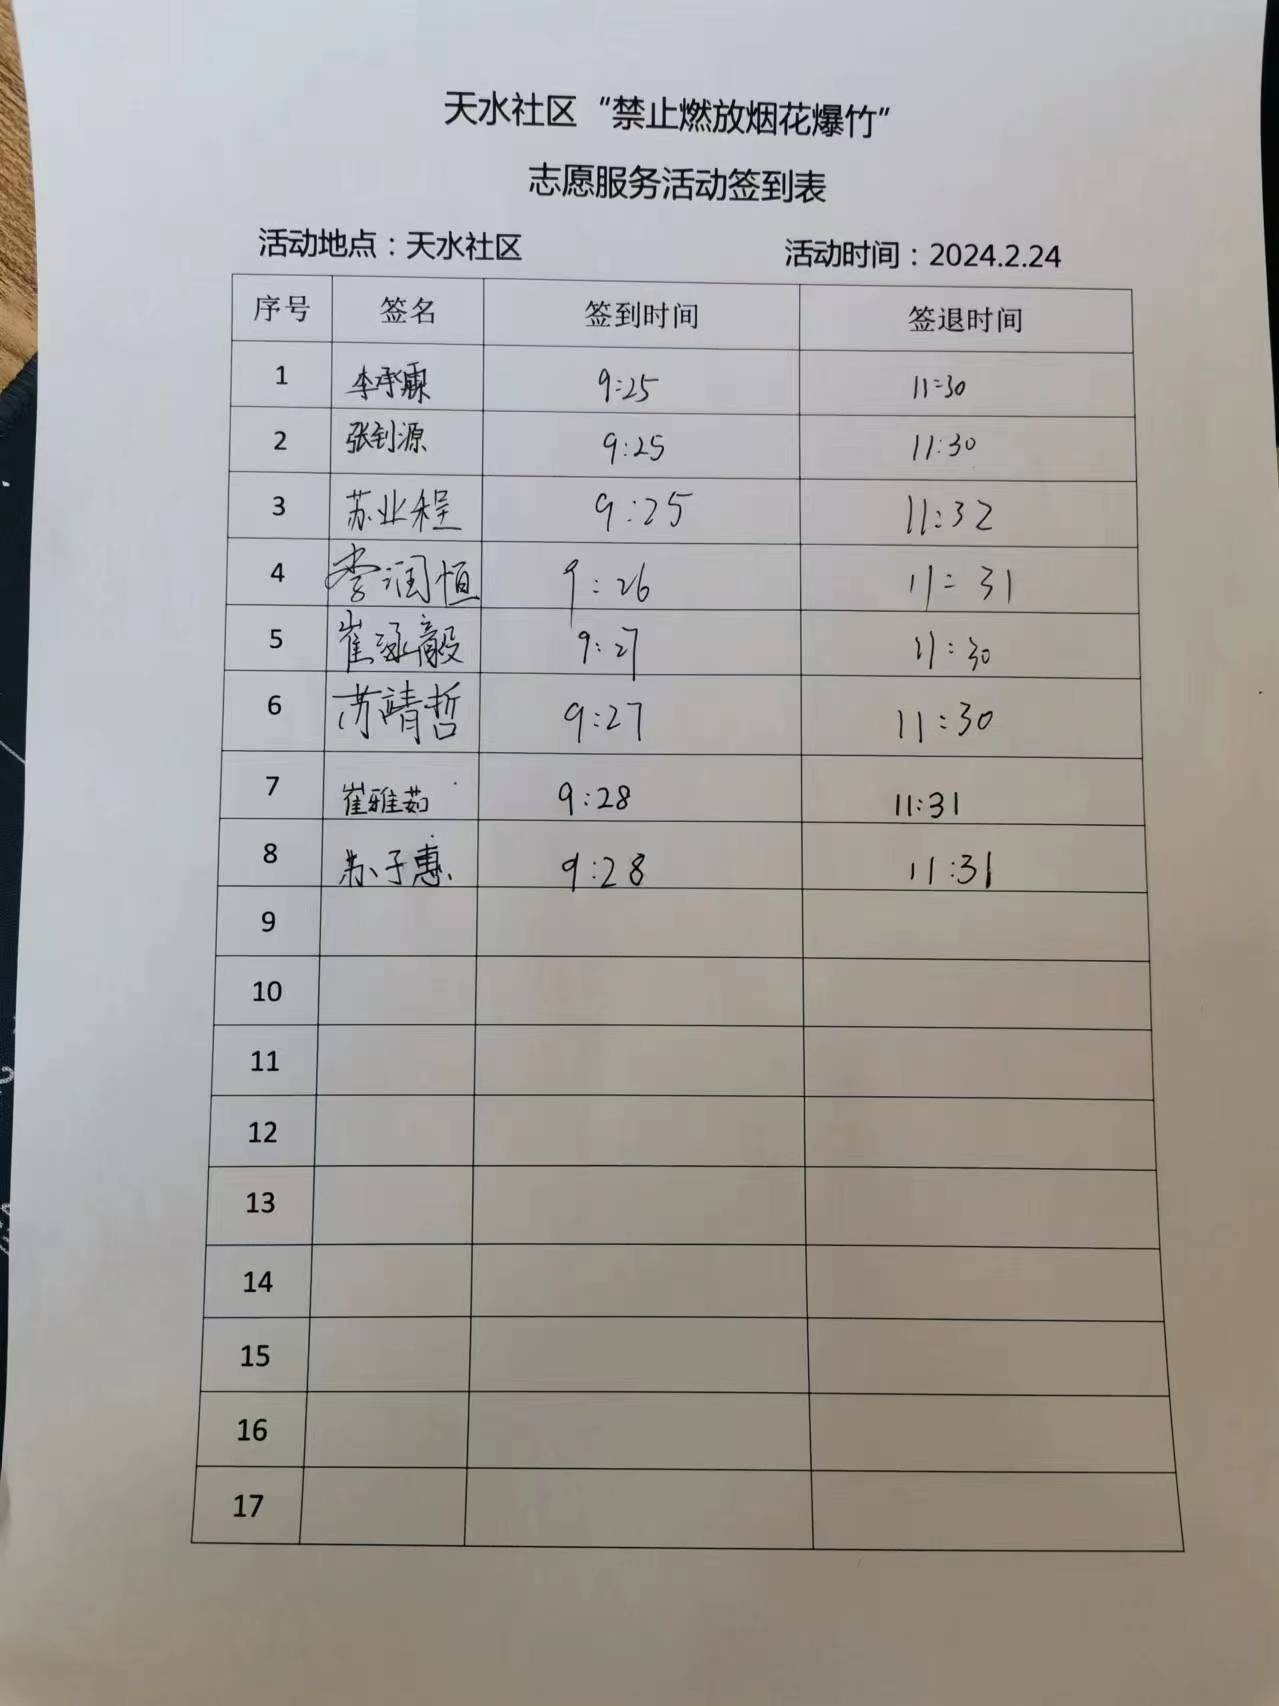 天水社区“禁止燃放烟花爆竹”
志愿服务活动签到表
活动地点：天水社区 活动时间：2024.2.24
序号 签名 签到时间 签退时间
1 李承霖 9:25 11:30
2 张钊源 9:25 11:30
3 苏业程 9:25 11:32
4 李润恒 9:26 11:31
5 崔涵毅 9:27 11:30
6 苏靖哲 9:27 11:30
7 崔雅茹 9:28 11:31
8 苏子惠 9:28 11:31
9
10
11
12
13
14
15
16
17